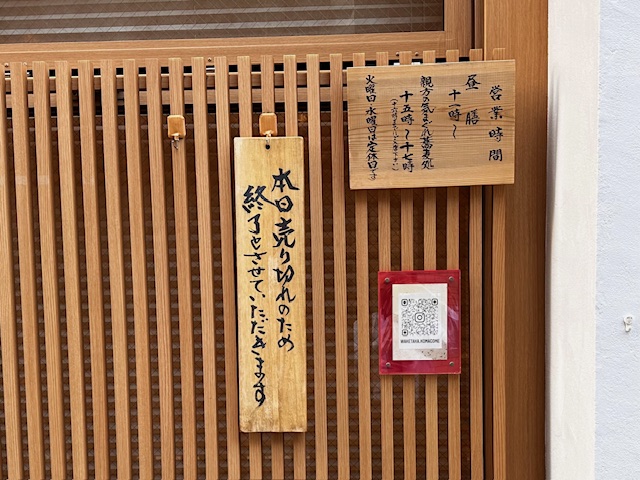 営業時間
昼膳
十一時〜
親方の気まぐれ蕎麦処
十五時〜十七時
火曜日 水曜日は定休日です
本日売り切れのため
終了とさせていただきます